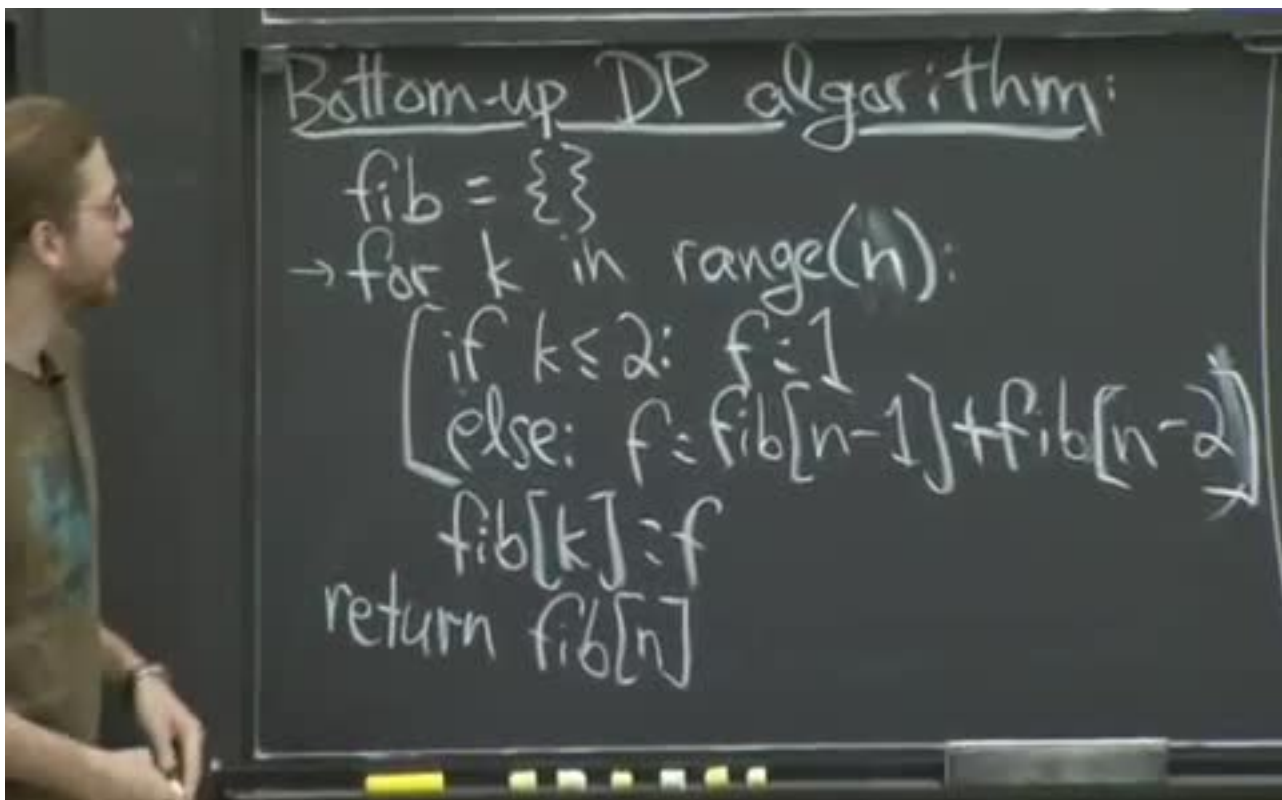 Bottom-up DP algorithm:
fib = {}
→ for k in range(n):
if k ≤ 2: f = 1
else: f = fib[n-1] + fib[n-2]
fib[k] = f
return fib[n]